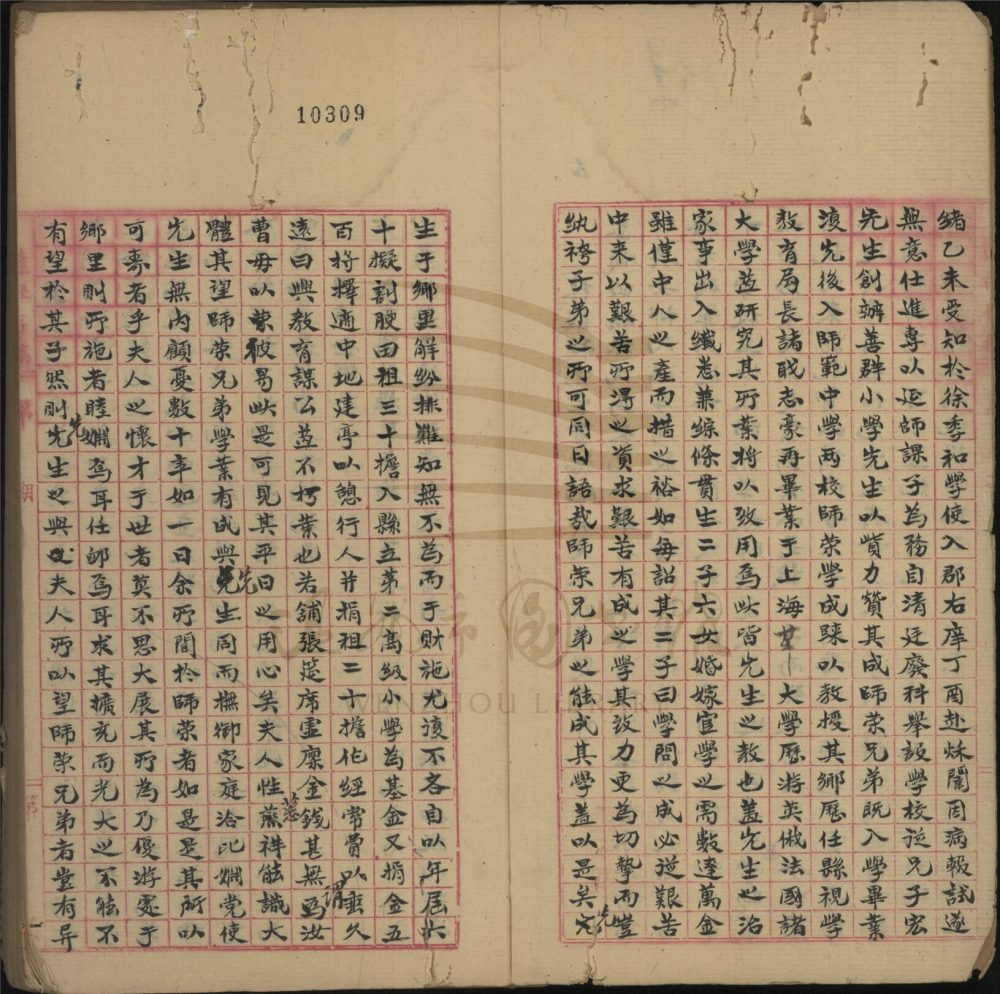 10309
緒乙未受知於徐季和學使入郡右庠丁酉赴秋闈因病輟試遂
無意仕進專以延師課子為務自清廷廢科舉設學校從兄子宏
先生創辦善群小學先生以貲力贊其成師荣兄弟既入學畢業
復先後入師範中學兩校師荣學成歸以教授其鄉歷任縣視學
教育局長諸職志豪再畢業于上海大學歷游英俄法國諸
大學益研究其所業將以致用焉此皆先生之教也蓋先生之治
家事出入纖悉兼綜條貫生二子六女婚嫁宦學之需數達萬金
雖僅中人之產而措之裕如每詔其二子曰學問之成必從艱苦
中来以艱苦所得之貲求艱苦有成之學其致力更為切摯而豈
紈袴子弟之所可同日語哉師荣兄弟之能成其學蓋以是矣先
生于鄉里解紛排難知無不為而于財施尤復不吝自以年屆六
十擬割腴田租三十擔入縣立第二高級小學為基金又捐金五
百将擇適中地建亭以憩行人并捐租二十擔作經常費以垂久
遠曰興教育謀公益不朽業也若舖張筵席靈廪金錢甚無謂汝
曹毋以彼易此是可見其平日之用心矣夫人性慈祥能識大
體其望師荣兄弟學業有成與先生同而撫御家庭洽比婣黨使
先生無内顧憂數十年如一日余所聞於師荣者如是是其所以
可壽者乎夫人之懷才于世者莫不思大展其所為乃優游處于
鄉里則所施者睦婣焉耳任卹焉耳求其擴充而光大之不能不
有望於其子然則先生之與夫人所以望師荣兄弟者豈有异
WENZHOU LIBRARY